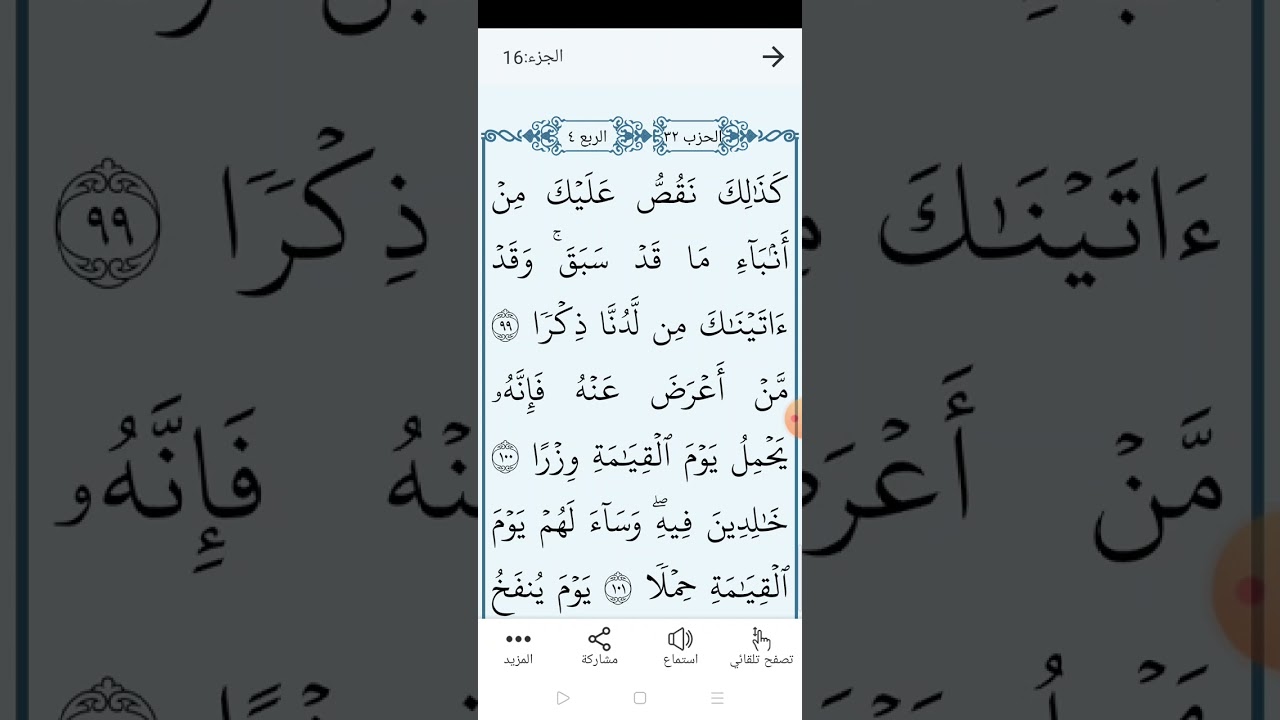 الجزء:16
الحزب ٣٢ الربع ٤
كَذَٰلِكَ نَقُصُّ عَلَيۡكَ مِنۡ
أَنۢبَآءِ مَا قَدۡ سَبَقَۚ وَقَدۡ
ءَاتَيۡنَٰكَ مِن لَّدُنَّا ذِكۡرٗا ٩٩
مَّنۡ أَعۡرَضَ عَنۡهُ فَإِنَّهُۥ
يَحۡمِلُ يَوۡمَ ٱلۡقِيَٰمَةِ وِزۡرًا ١٠٠
خَٰلِدِينَ فِيهِۖ وَسَآءَ لَهُمۡ يَوۡمَ
ٱلۡقِيَٰمَةِ حِمۡلٗا ١٠١ يَوۡمَ يُنفَخُ
تصفح تلقائي استماع مشاركة المزيد